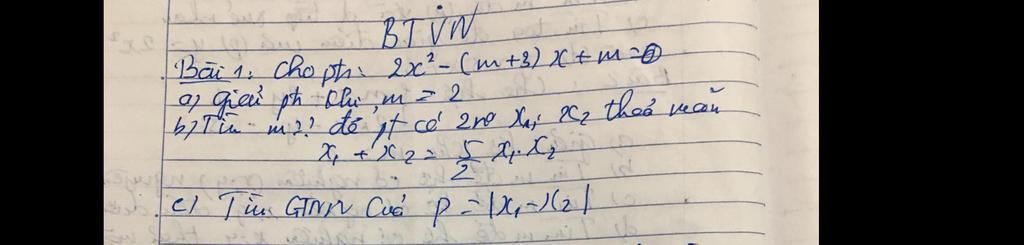 BTVN
Bài 1: Cho pt: 2x² - (m+3)x + m = 0
a) giải pt khi m = 2
b) Tìm m?? để pt có 2no x₁; x₂ thoả mãn
x₁ + x₂ = 5/2 x₁.x₂
c) Tìm GTNN Của P = |x₁-x₂|